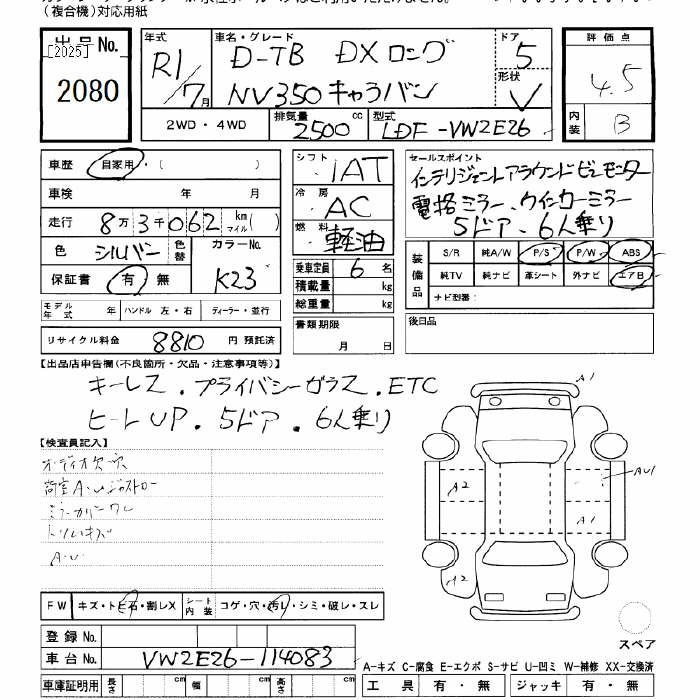 (複合機)対応用紙
出品No.
[2025]
2080
年式 R1/7月
車名・グレード D-TB DXロング
NV350キャラバン
ドア 5
形状 V
評価点 4.5
内装 B
2WD・4WD
排気量 2500 cc
型式 LDF-VW2E26
車歴 自家用・( )
車検 年 月
走行 8万3千062 km マイル( )
色 シルバー 色替 カラーNo. K23
保証書 有 無
モデル年式 年 ハンドル 左・右 ディーラー・並行
リサイクル料金 8810 円 預託済
シフト IAT
冷房 AC
燃料 軽油
乗車定員 6名
積載量 kg
総重量 kg
書類期限 月 日
セールスポイント
インテリジェントアラウンドビューモニター
電格ミラー、ウインカーミラー
5ドア、6人乗り
装備品 S/R 純A/W P/S P/W ABS
純TV 純ナビ 革シート 外ナビ エアB
ナビ型番:
後日品
【出品店申告欄(不良箇所・欠品・注意事項等)】
キーレス.プライバシーガラス.ETC
ヒートUP.5ドア.6人乗り
【検査員記入】
A・U
A1
A2
AU1
A1
A2
FW キズ・トビ石・割レX シート内装 コゲ・穴・汚レ・シミ・破レ・スレ
登録No.
車台No. VW2E26-114083
スペア
A-キズ C-腐食 E-エクボ S-サビ U-凹ミ W-補修 XX-交換済
車庫証明用 長さ cm 幅 cm 高さ cm
工具 有・無 ジャッキ 有・無